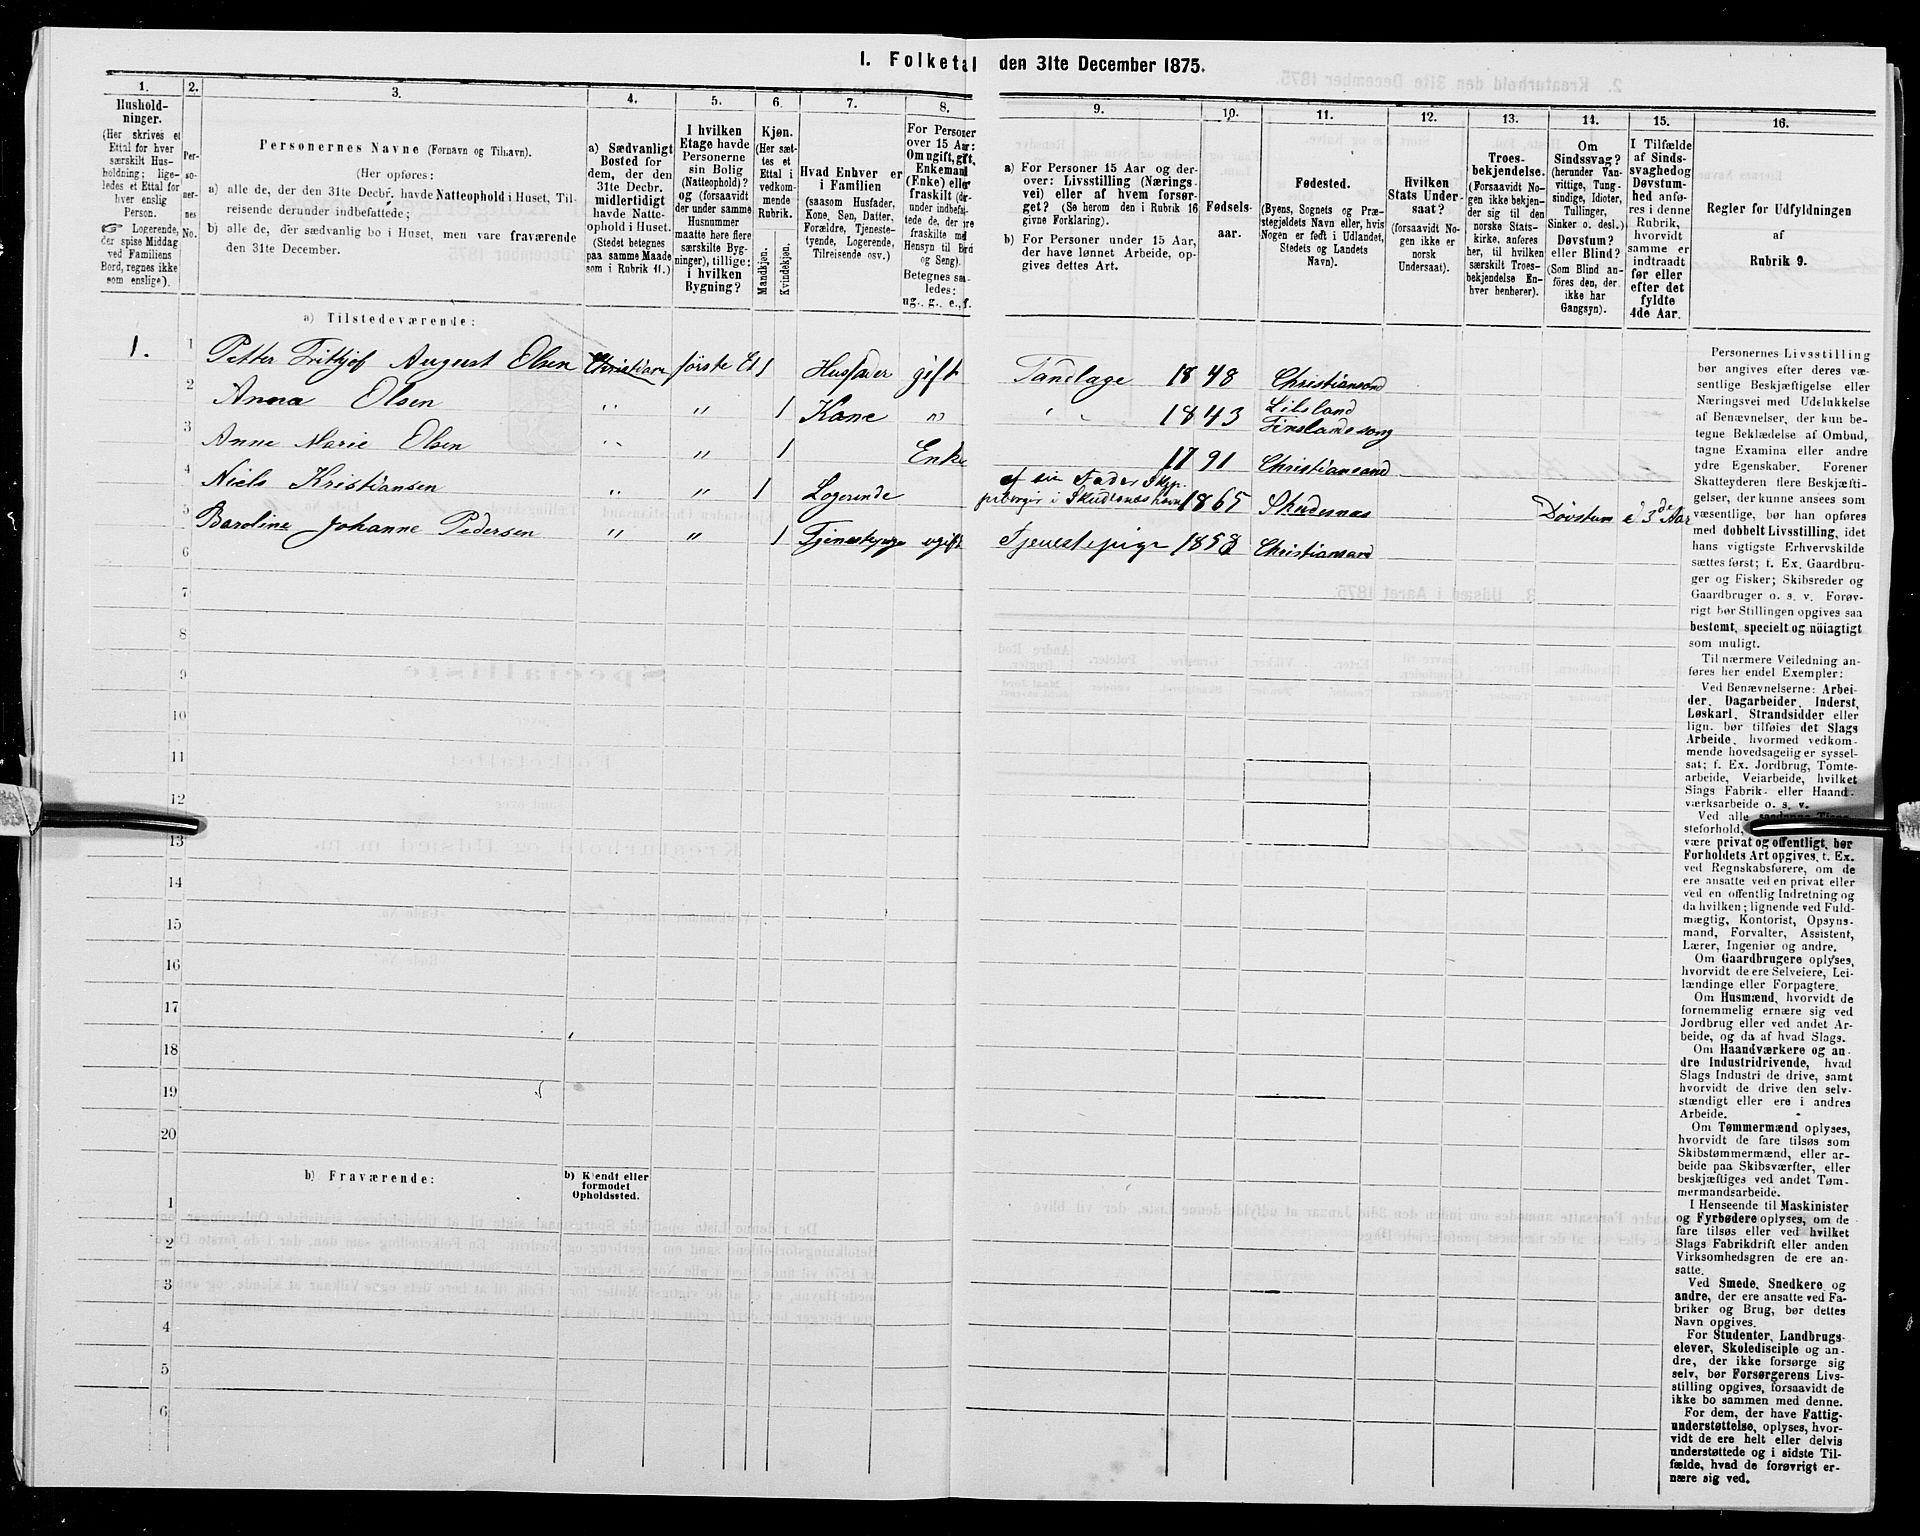 1. Folketal den 31te December 1875.
1.
Hushold-
ninger.
(Her skrives et
Ettal for hver
særskilt Hus-
holdning; lige-
ledes et Ettal for
hver enslig
Person.
☞ Logerende,
der spise Middag
ved Familiens
Bord, regnes ikke
som enslige).
2.
Per-
so-
ner-
nes
No.
3.
Personernes Navne (Fornavn og Tilnavn).
(Her opføres:
a) alle de, der den 31te Decbr. havde Natteophold i Huset, Til-
reisende derunder indbefattede;
b) alle de, der sædvanlig bo i Huset, men vare fraværende
den 31te December.
4.
a) Sædvanligt
Bosted for
dem, der den
31te Decbr.
midlertidigt
havde Natte-
ophold i Huset.
(Stedet betegnes
paa samme Maade
som i Rubrik 11.)
5.
I hvilken
Etage havde
Personerne
sin Bolig
(Natteophold)?
og (forsaavidt
der under samme
Husnummer
maatte høre flere
særskilte Byg-
ninger), tillige:
i hvilken
Bygning?
6.
Kjøn.
(Her sæt-
tes et
Ettal i
vedkom-
mende
Rubrik.
Mandkjøn.
Kvindekjøn.
7.
Hvad Enhver er
i Familien
(saasom Husfader,
Kone, Søn, Datter,
Forældre, Tjeneste-
tyende, Logerende,
Tilreisende osv.)
8.
For Personer
over 15 Aar:
Om ugift, gift,
Enkemand
(Enke) eller
fraskilt
Betegnes saa-
ledes:
ug., g., e., f.
9.
a) For Personer 15 Aar og der-
over: Livsstilling (Nærings-
vei) eller af hvem forsør-
get? (Se herom den i Rubrik 16
givne Forklaring).
b) For Personer under 15 Aar,
der have lønnet Arbeide, op-
gives dettes Art.
10.
Fødsels-
aar.
11.
Fødested.
(Byens, Sognets og Præ-
stegjeldets Navn eller, hvis
Nogen er født i Udlandet,
Stedets og Landets
Navn).
12.
Hvilken
Stats Under-
saat?
(forsaavidt No-
gen ikke er
norsk
Undersaat).
13.
Troes-
bekjendelse.
(Forsaavidt No-
gen ikke bekjen-
der sig til den
norske Stats-
kirke, anføres
her, til hvilken
særskilt Troes-
bekjendelse En-
hver henhører).
14.
Om
Sindssvag?
(herunder Van-
vittige, Tung-
sindige, Idioter,
Tullinger,
Sinker o. desl.)
Døvstum?
eller Blind?
(Som Blind an-
føres den, der
ikke har
Gangsyn).
15.
I Tilfælde
af Sinds-
svaghed og
Døvstum-
hed anfø-
res i denne
Rubrik,
hvorvidt
samme er
indtraadt
før eller
efter det
fyldte
4de Aar.
16.
Regler for Udfyldningen
af
Rubrik 9.
a) Tilstedeværende:
1. 1 Petter Frithjof August Olsen Christians første Et 1 Husfader gift Tandlæge 1848 Christiansand
2 Anna Olsen " " 1 Kone " " 1843 Finsland
3 Anne Marie Olsen " " 1 Enke 1791 Christiansand
4 Niels Kristiansen " " 1 Logerende af sin Fader Skip- i Skudesnæshavn 1865 Skudesnæs Døvstum i 3de Aar
5 Baroline Johanne Pedersen " " 1 Tjenestepige ugift Tjenestepige 1858 Christiansand
6
7
8
9
10
11
12
13
14
15
16
17
18
19
20
b) Fraværende:
b) Kjendt eller
formodet
Opholdssted.
1
2
3
4
5
6
Personernes Livsstilling
bør angives efter deres væ-
sentlige Beskjæftigelse eller
Næringsvei med Udelukkelse
af Benævnelser, der kun be-
tegne Beklædelse af Ombud,
tagne Examina eller andre
ydre Egenskaber. Forener
Skatteyderen flere Beskjæfti-
gelser, der kunne ansees som
væsentlige, bør han opføres
med dobbelt Livsstilling, idet
hans vigtigste Erhvervskilde
sættes først; f. Ex. Gaardbru-
ger og Fisker; Skibsreder og
Gaardbruger o. s. v. Forøv-
rigt bør Stillingen opgives saa
bestemt, specielt og nöiagtigt
som muligt.
Til nærmere Veiledning an-
føres her endel Exempler:
Ved Benævnelserne: Arbei-
der, Dagarbeider, Inderst,
Løskarl, Strandsidder eller
lign. bør tilføies det Slags
Arbeide, hvormed vedkom-
mende hovedsagelig er syssel-
sat; f. Ex. Jordbrug, Tomte-
arbeide, Veiarbeide, hvilket
Slags Fabrik- eller Haand-
værksarbeide o. s. v.
Ved alle saadanne Tjene-
steforhold,
være privat og offentligt, bør
Forholdets Art opgives, t. Ex.
ved Regnskabsførere, om de
ere ansatte ved en privat eller
ved en offentlig Indretning og
da hvilken; lignende ved Fuld-
mægtig, Kontorist, Opsyns-
mand, Forvalter, Assistent,
Lærer, Ingeniør og andre.
Om Gaardbrugere oplyses,
hvorvidt de ere Selveiere, Lei-
lændinge eller Forpagtere.
Om Husmænd, hvorvidt de
fornemmelig ernære sig ved
Jordbrug eller ved andet Ar-
beide, og da af hvad Slags.
Om Haandværkere og an-
dre Industridrivende, hvad
Slags Industri de drive, samt
hvorvidt de drive den selv-
stændigt eller ere i andres
Arbeide.
Om Tømmermænd oplyses,
hvorvidt de fare tilsøs som
Skibstømmermænd, eller ar-
beide paa Skibsværfter, eller
beskjæftiges ved andet Tøm-
mermandsarbeide.
I Henseende til Maskinister
og Fyrbødere oplyses, om de
fare tilsøs eller ved hvilket
Slags Fabrikdrift eller anden
Virksomhedsgren de ere an-
satte.
Ved Smede, Snedkere og
andre, der ere ansatte ved Fa-
briker og Brug, bør dettes
Navn opgives.
For Studenter, Landbrugs-
elever, Skoledisciple og an-
dre, der ikke forsørge sig
selv, bør Forsørgerens Livs-
stilling opgives, forsaavidt de
ikke bo sammen med denne.
For dem, der have Fattig-
understøttelse, oplyses, hvor-
vidt de ere helt eller delvis
understøttede og i sidste Til-
fælde, hvad de forøvrigt er-
nære sig ved.